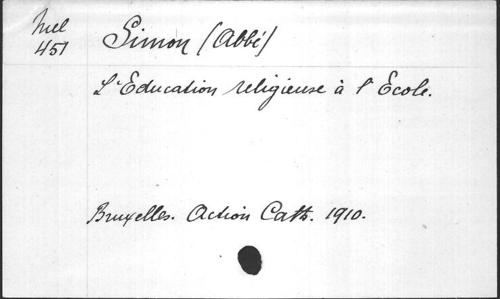 Mel
451
Simon (Abbé)
L'Education religieuse à l'Ecole.
Bruxelles. Action Cath. 1910.